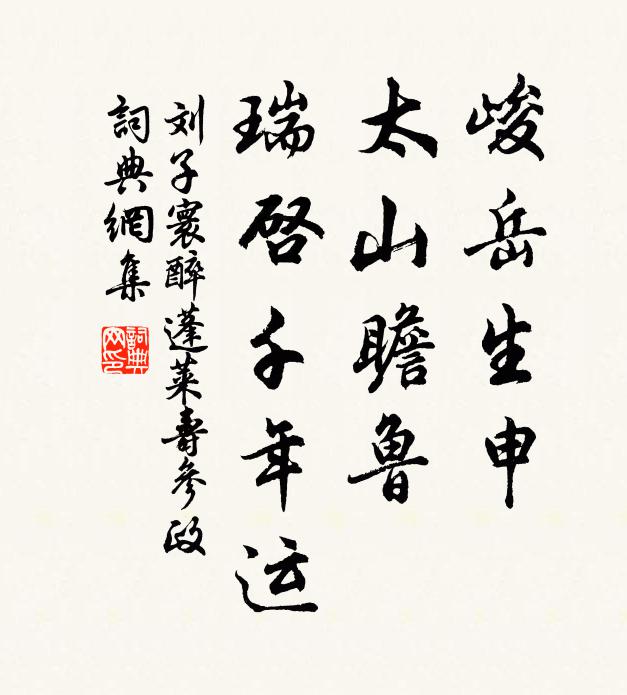 峻岳生申
太山瞻鲁
瑞啓千年运
刘子寰醉蓬莱壽參政
詞典網集
詞典网印